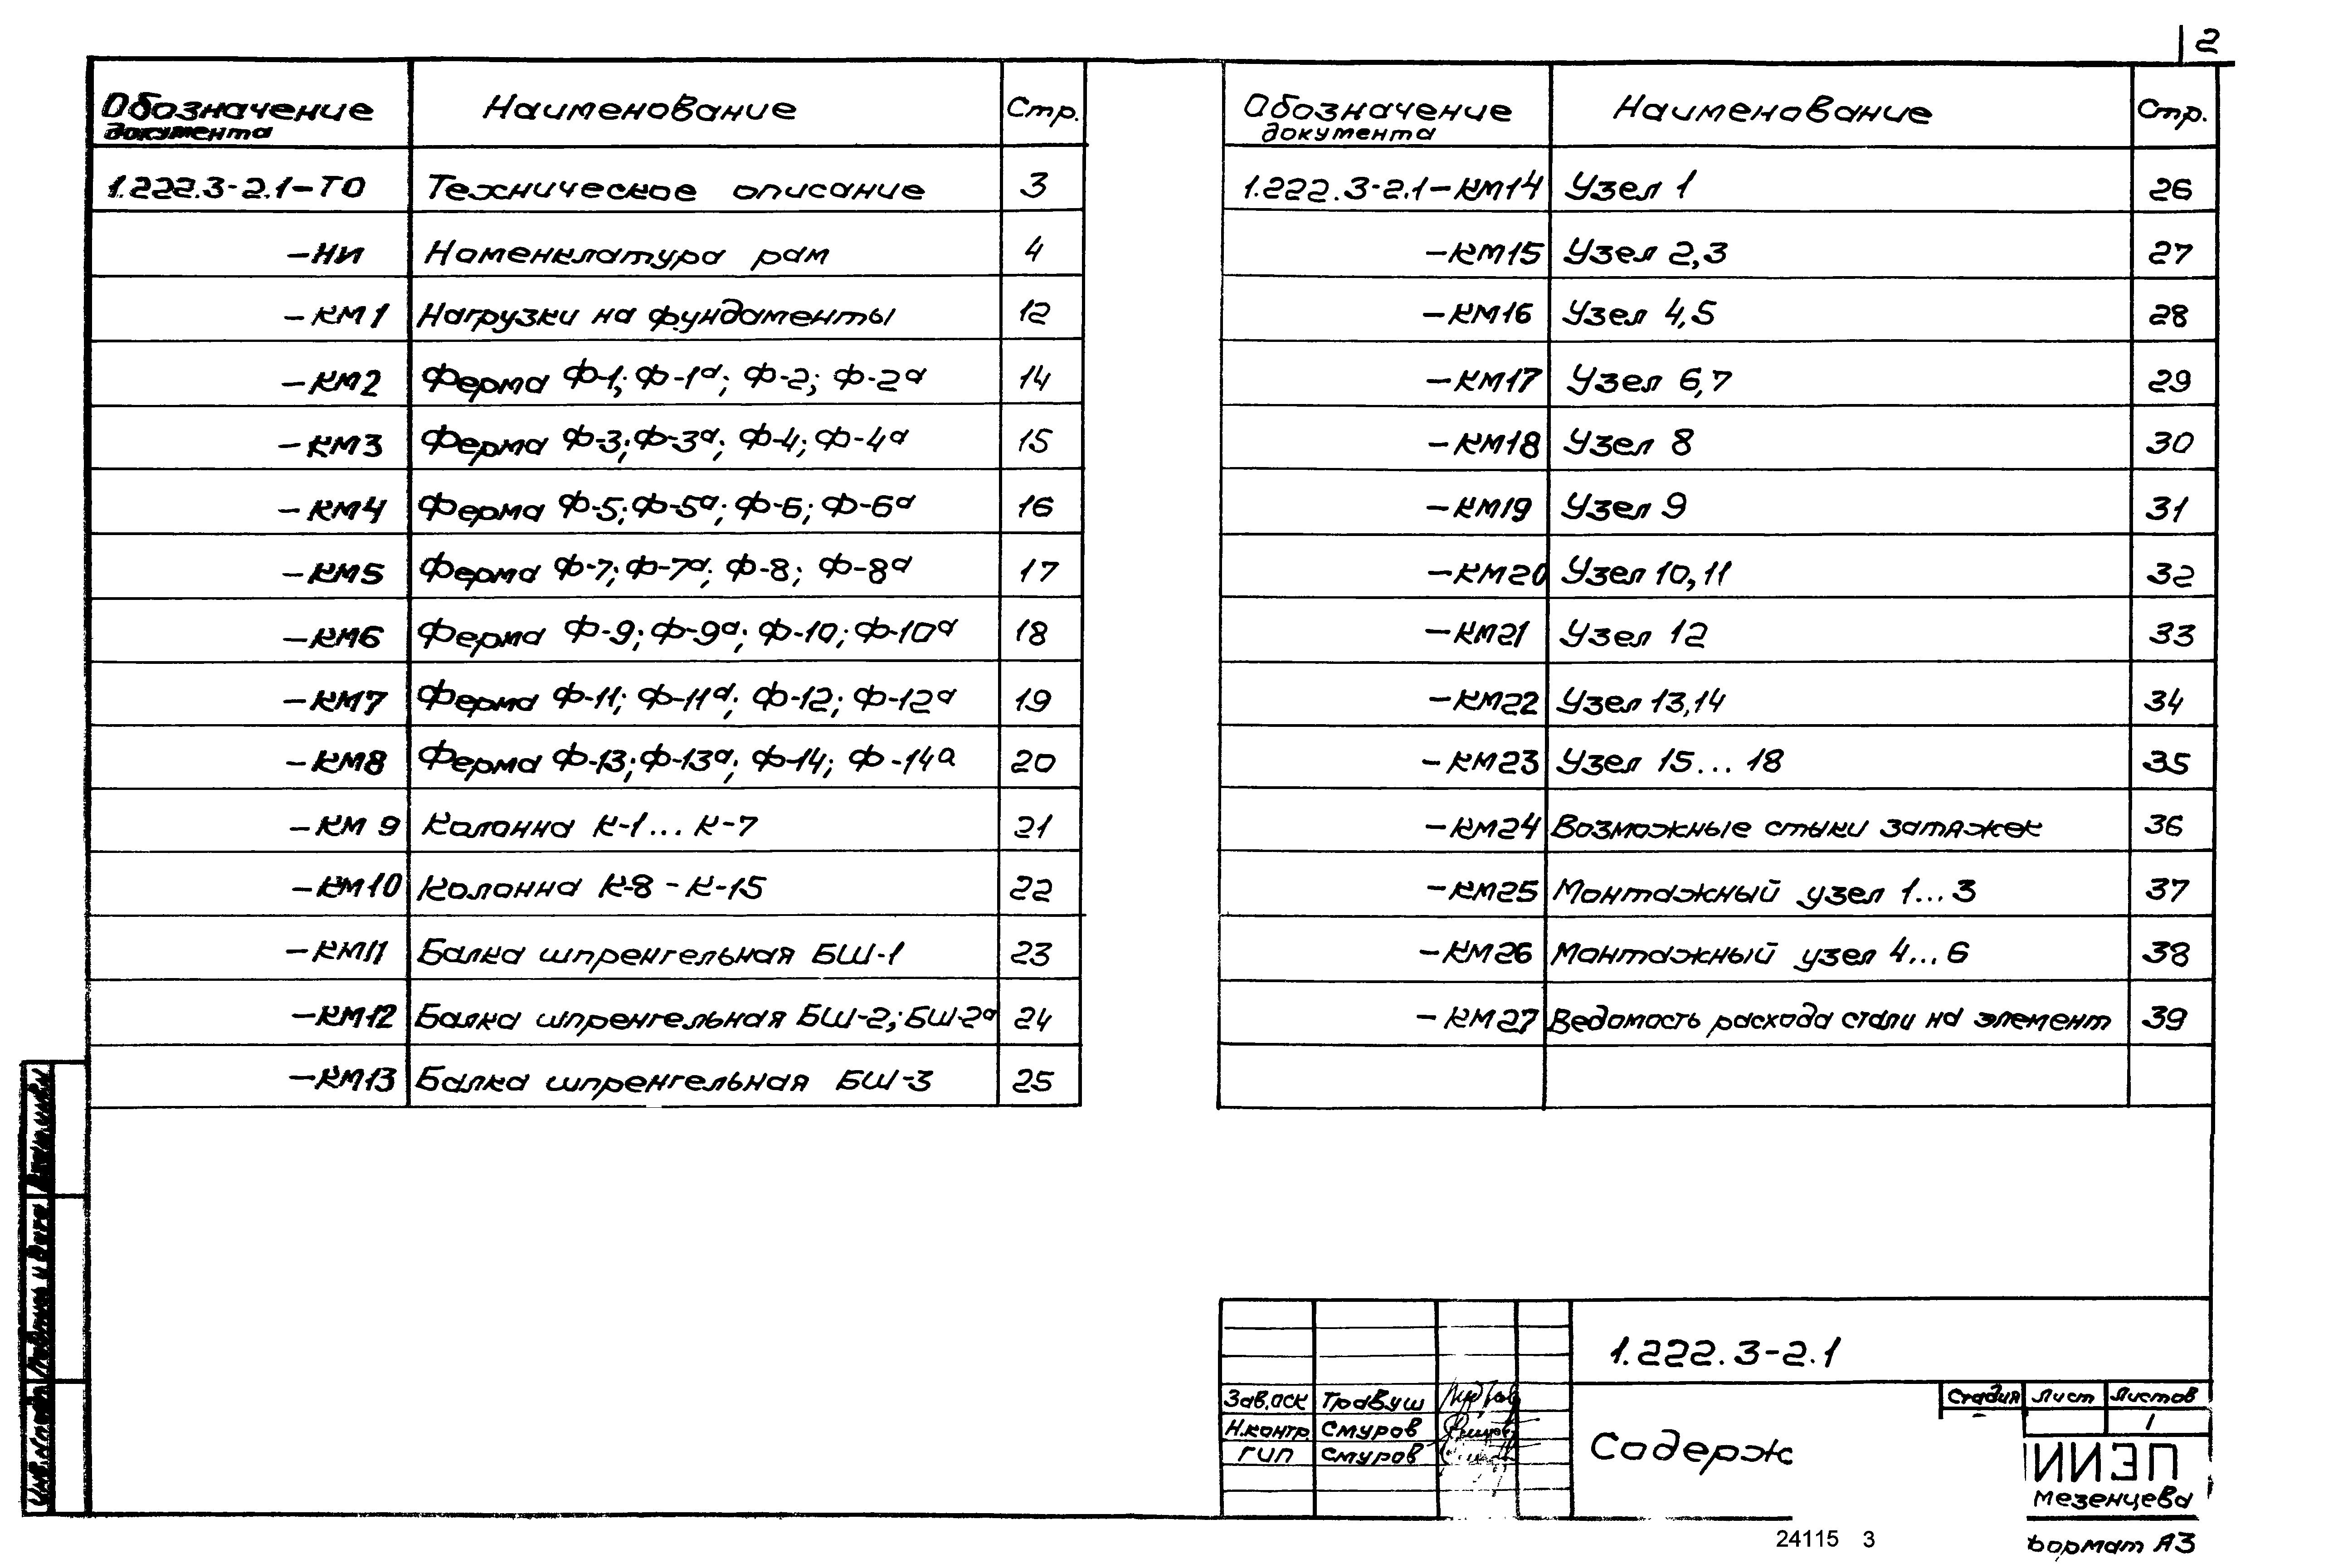 2
Обозначение документа Наименование Стр.
1.222.3-2.1-ТО Техническое описание 3
-НИ Номенклатура рам 4
-КМ1 Нагрузки на фундаменты 12
-КМ2 Ферма Ф-1; Ф-1а; Ф-2; Ф-2а 14
-КМ3 Ферма Ф-3; Ф-3а; Ф-4; Ф-4а 15
-КМ4 Ферма Ф-5; Ф-5а; Ф-6; Ф-6а 16
-КМ5 Ферма Ф-7; Ф-7а; Ф-8; Ф-8а 17
-КМ6 Ферма Ф-9; Ф-9а; Ф-10; Ф-10а 18
-КМ7 Ферма Ф-11; Ф-11а; Ф-12; Ф-12а 19
-КМ8 Ферма Ф-13; Ф-13а; Ф-14; Ф-14а 20
-КМ 9 Колонна К-1... К-7 21
-КМ10 Колонна К-8 - К-15 22
-КМ11 Балка шпренгельная БШ-1 23
-КМ12 Балка шпренгельная БШ-2; БШ-2а 24
-КМ13 Балка шпренгельная БШ-3 25
Обозначение документа Наименование Стр.
1.222.3-2.1-КМ14 Узел 1 26
-КМ15 Узел 2,3 27
-КМ16 Узел 4,5 28
-КМ17 Узел 6,7 29
-КМ18 Узел 8 30
-КМ19 Узел 9 31
-КМ20 Узел 10,11 32
-КМ21 Узел 12 33
-КМ22 Узел 13,14 34
-КМ23 Узел 15...18 35
-КМ24 Возможные стыки затяжек 36
-КМ25 Монтажный узел 1...3 37
-КМ26 Монтажный узел 4...6 38
-КМ27 Ведомость расхода стали на элемент 39
Инв.№подл. Подпись и дата Взам.инв.№
1.222.3-2.1
Зав.аск Травуш
Н.контр. Смуров
ГИП Смуров
Содерж
Стадия Лист Листов
1
ИИЭП
Мезенцева
24115 3
Формат А3